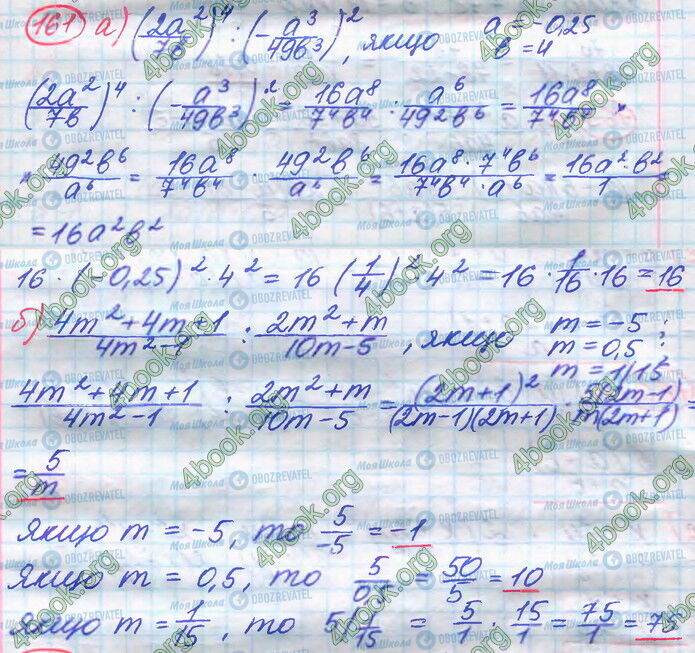 161) а) (2a²/7b)⁴ : (-a³/49b³)², якщо a = -0,25
b = 4
(2a²/7b)⁴ : (-a³/49b³)² = 16a⁸/7⁴b⁴ : a⁶/49²b⁶ = 16a⁸/7⁴b⁴ ×
× 49²b⁶/a⁶ = 16a⁸/7⁴b⁴ · 49²b⁶/a⁶ = 16a⁸·7⁴b⁶/7⁴b⁴·a⁶ = 16a²·b²/1 =
= 16a²b²
16 · (-0,25)² · 4² = 16 (1/4)² · 4² = 16 · 1/16 · 16 = 16
б) 4m²+4m+1/4m²-1 : 2m²+m/10m-5, якщо m = -5;
m = 0,5
m = 1/15
4m²+4m+1/4m²-1 : 2m²+m/10m-5 = (2m+1)²/(2m-1)(2m+1) · 5(2m-1)/m(2m+1) =
= 5/m
Якщо m = -5, то 5/-5 = -1
Якщо m = 0,5, то 5/0,5 = 50/5 = 10
Якщо m = 1/15, то 5/1/15 = 5/1 · 15/1 = 75/1 = 75